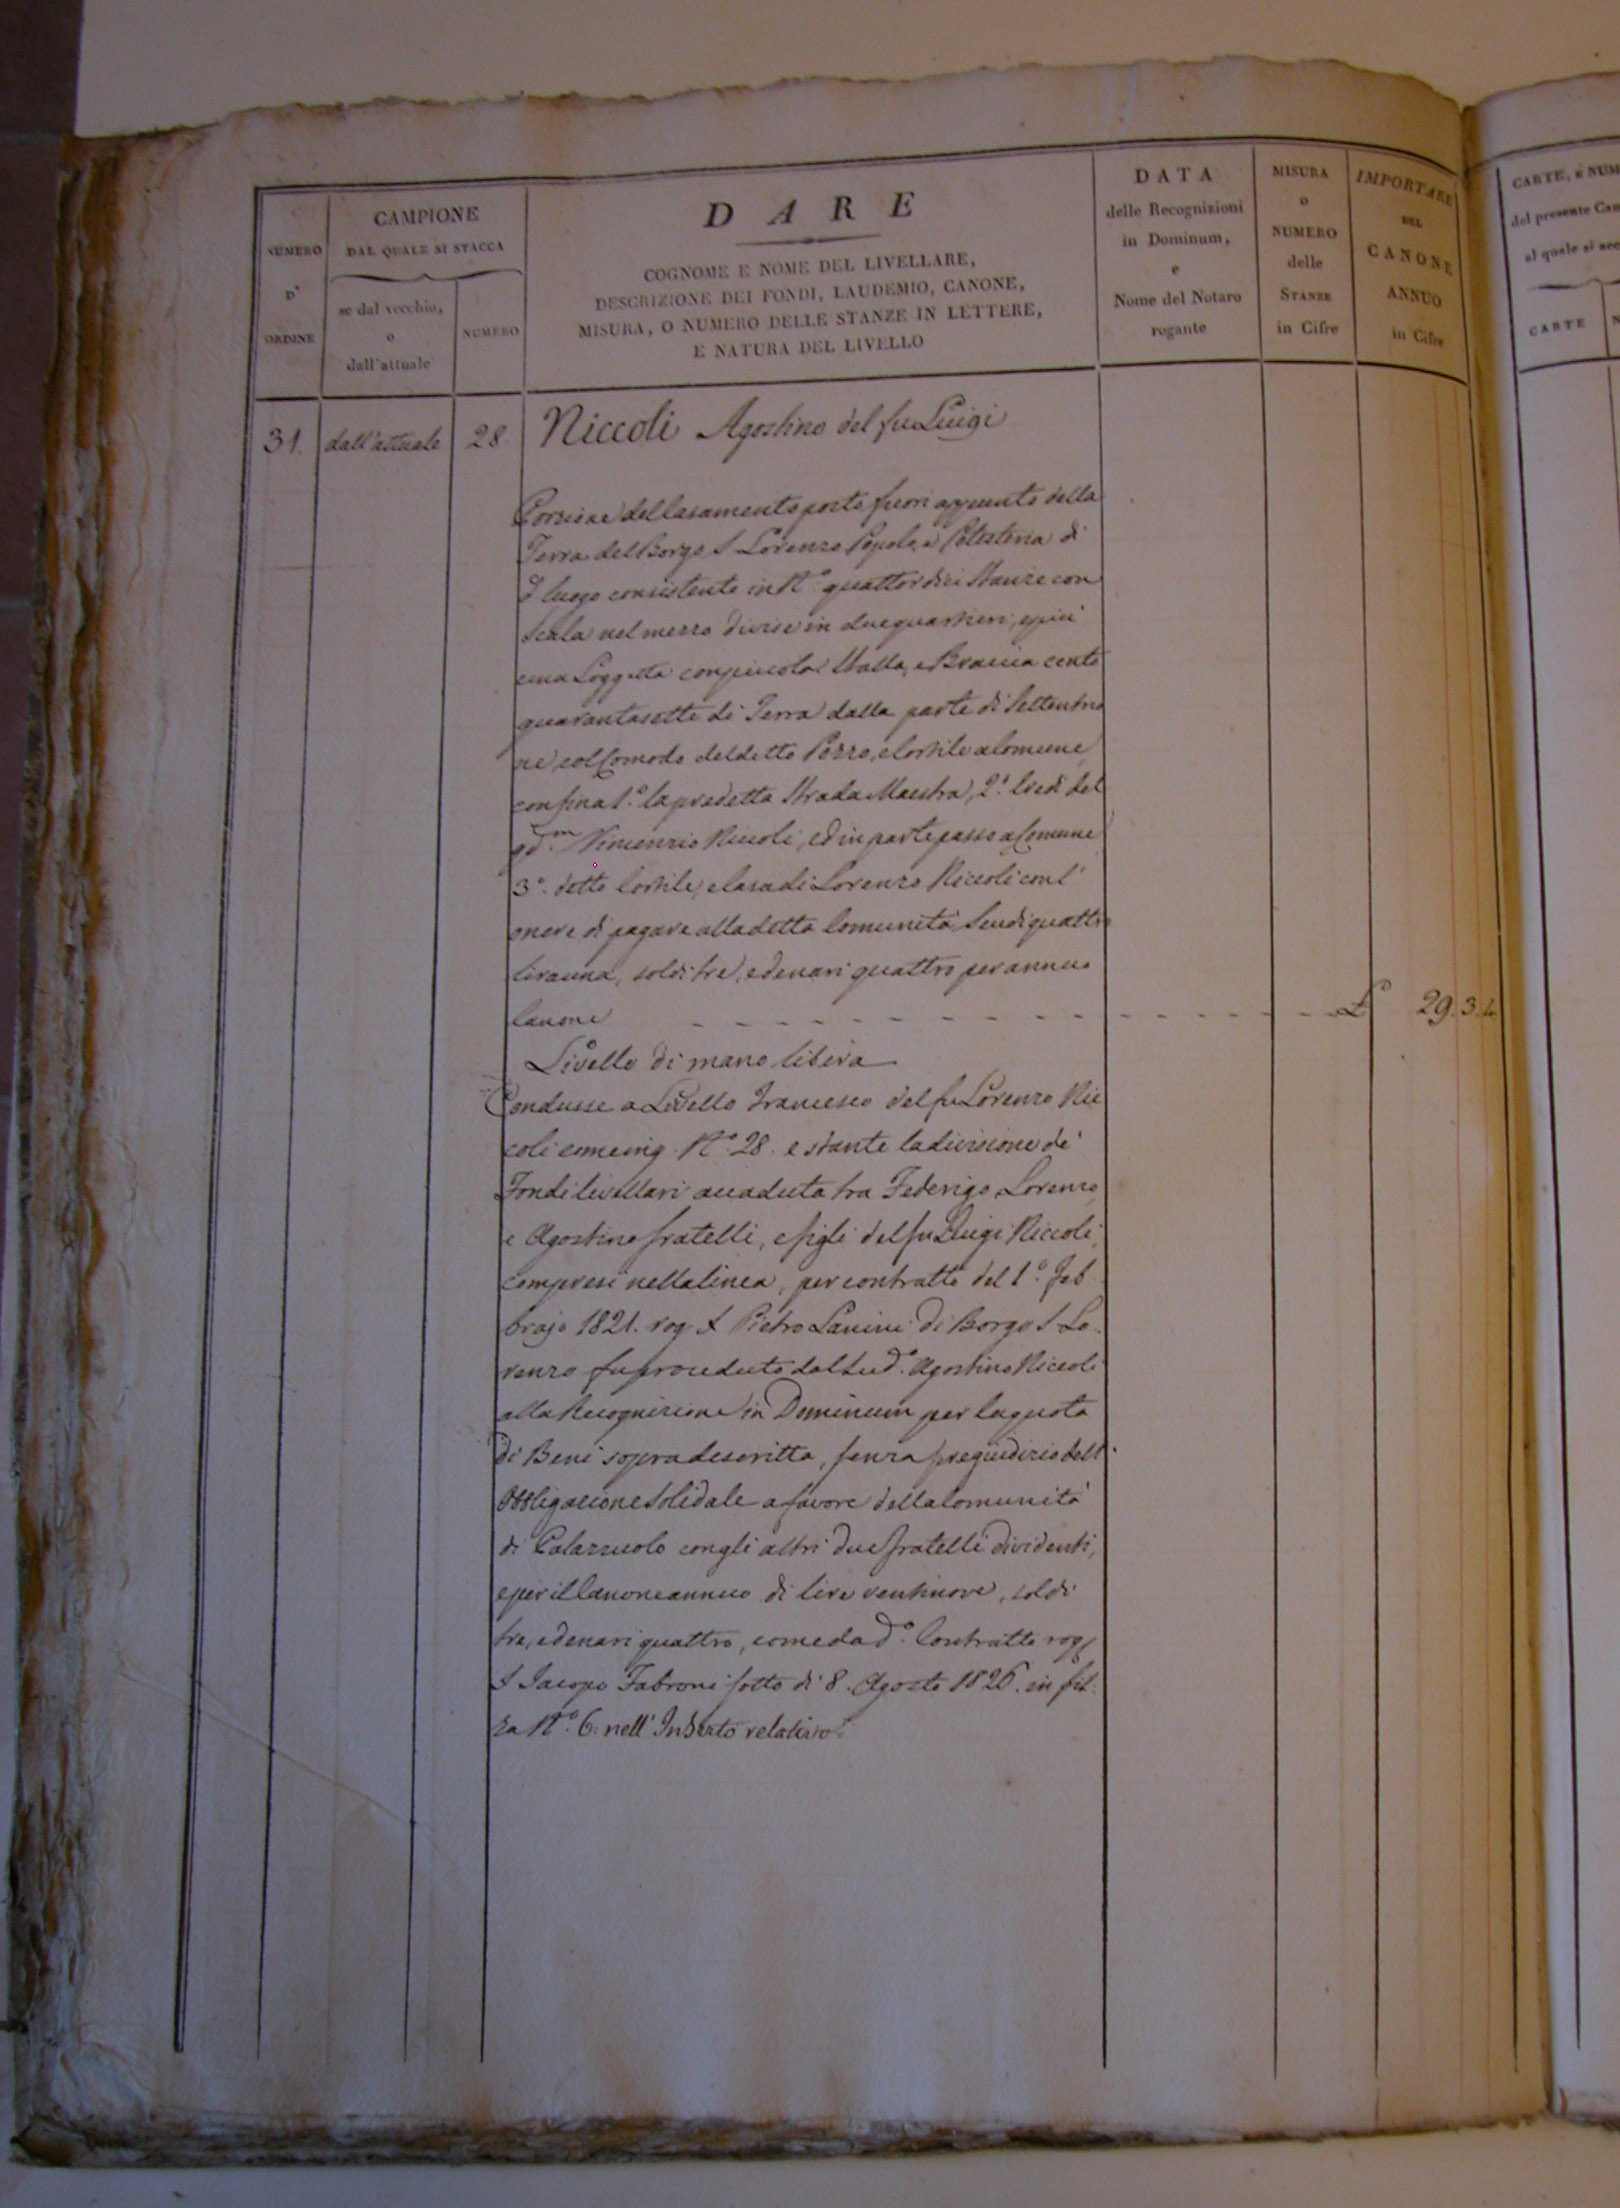 NUMERO
D'
ORDINE
CAMPIONE
DAL QUALE SI STACCA
se dal vecchio,
o
dall'attuale
NUMERO
DARE
COGNOME E NOME DEL LIVELLARE,
DESCRIZIONE DEI FONDI, LAUDEMIO, CANONE,
MISURA, O NUMERO DELLE STANZE IN LETTERE,
E NATURA DEL LIVELLO
DATA
delle Recognizioni
in Dominum,
e
Nome del Notaro
rogante
MISURA
O
NUMERO
delle
STANZE
in Cifre
IMPORTARE
DEL
CANONE
ANNUO
in Cifre
CARTE, E NUM
del presente Cam
al quale si acc
CARTE
N
31. dall'attuale 28. Niccoli Agostino del fu Luigi
Porzione del Casamento posto fuori appunto della
Terra del Borgo S Lorenzo Popolo, e Potesteria di
d.º luogo consistente in N.º quattordici Stanze con
Scala nel mezzo divise in due quartieri, e più
una Loggetta con piccola Stalla, e Braccia cento
quarantasette di Terra dalla parte di Settentrio
ne col Comodo del detto Pozzo, e Cortile a Comune
confina 1.º la predetta Strada Maestra, 2.º Eredi del
qd.m Vincenzio Niccoli, ed in parte passo a Comune
3.º detto Cortile, e Casa di Lorenzo Niccoli con l'
onere di pagare alla detta Comunità Scudi quattro
lira una, soldi tre, e denari quattro per annuo
Canone - - - - - - - - - - - - £ 29. 3. 4
Livello di mano libera
Condusse a Livello Francesco del fu Lorenzo Nic
coli come in q. N.º 28. e stante la divisione de'
Fondi livellari accaduta tra Federigo, Lorenzo,
e Agostino fratelli, e figli del fu Luigi Niccoli,
compresi nella linea, per contratto del 1.º Feb
brajo 1821. rog S Pietro Lanini di Borgo S Lo
renzo fu proceduto dal sud.º Agostino Niccoli
alla Recognizione in Dominum per la quota
di Beni sopradescritta, senza pregiudizio dell'
Obbligazione solidale a favore della Comunità
di Palazzuolo con gli altri due fratelli dividenti,
e per il Canone annuo di lire ventinove, soldi
tre, e denari quattro, come da d.º Contratto rog
S Jacopo Fabroni sotto dì 8. Agosto 1826. in fil
za N.º 6: nell'Inserto relativo.